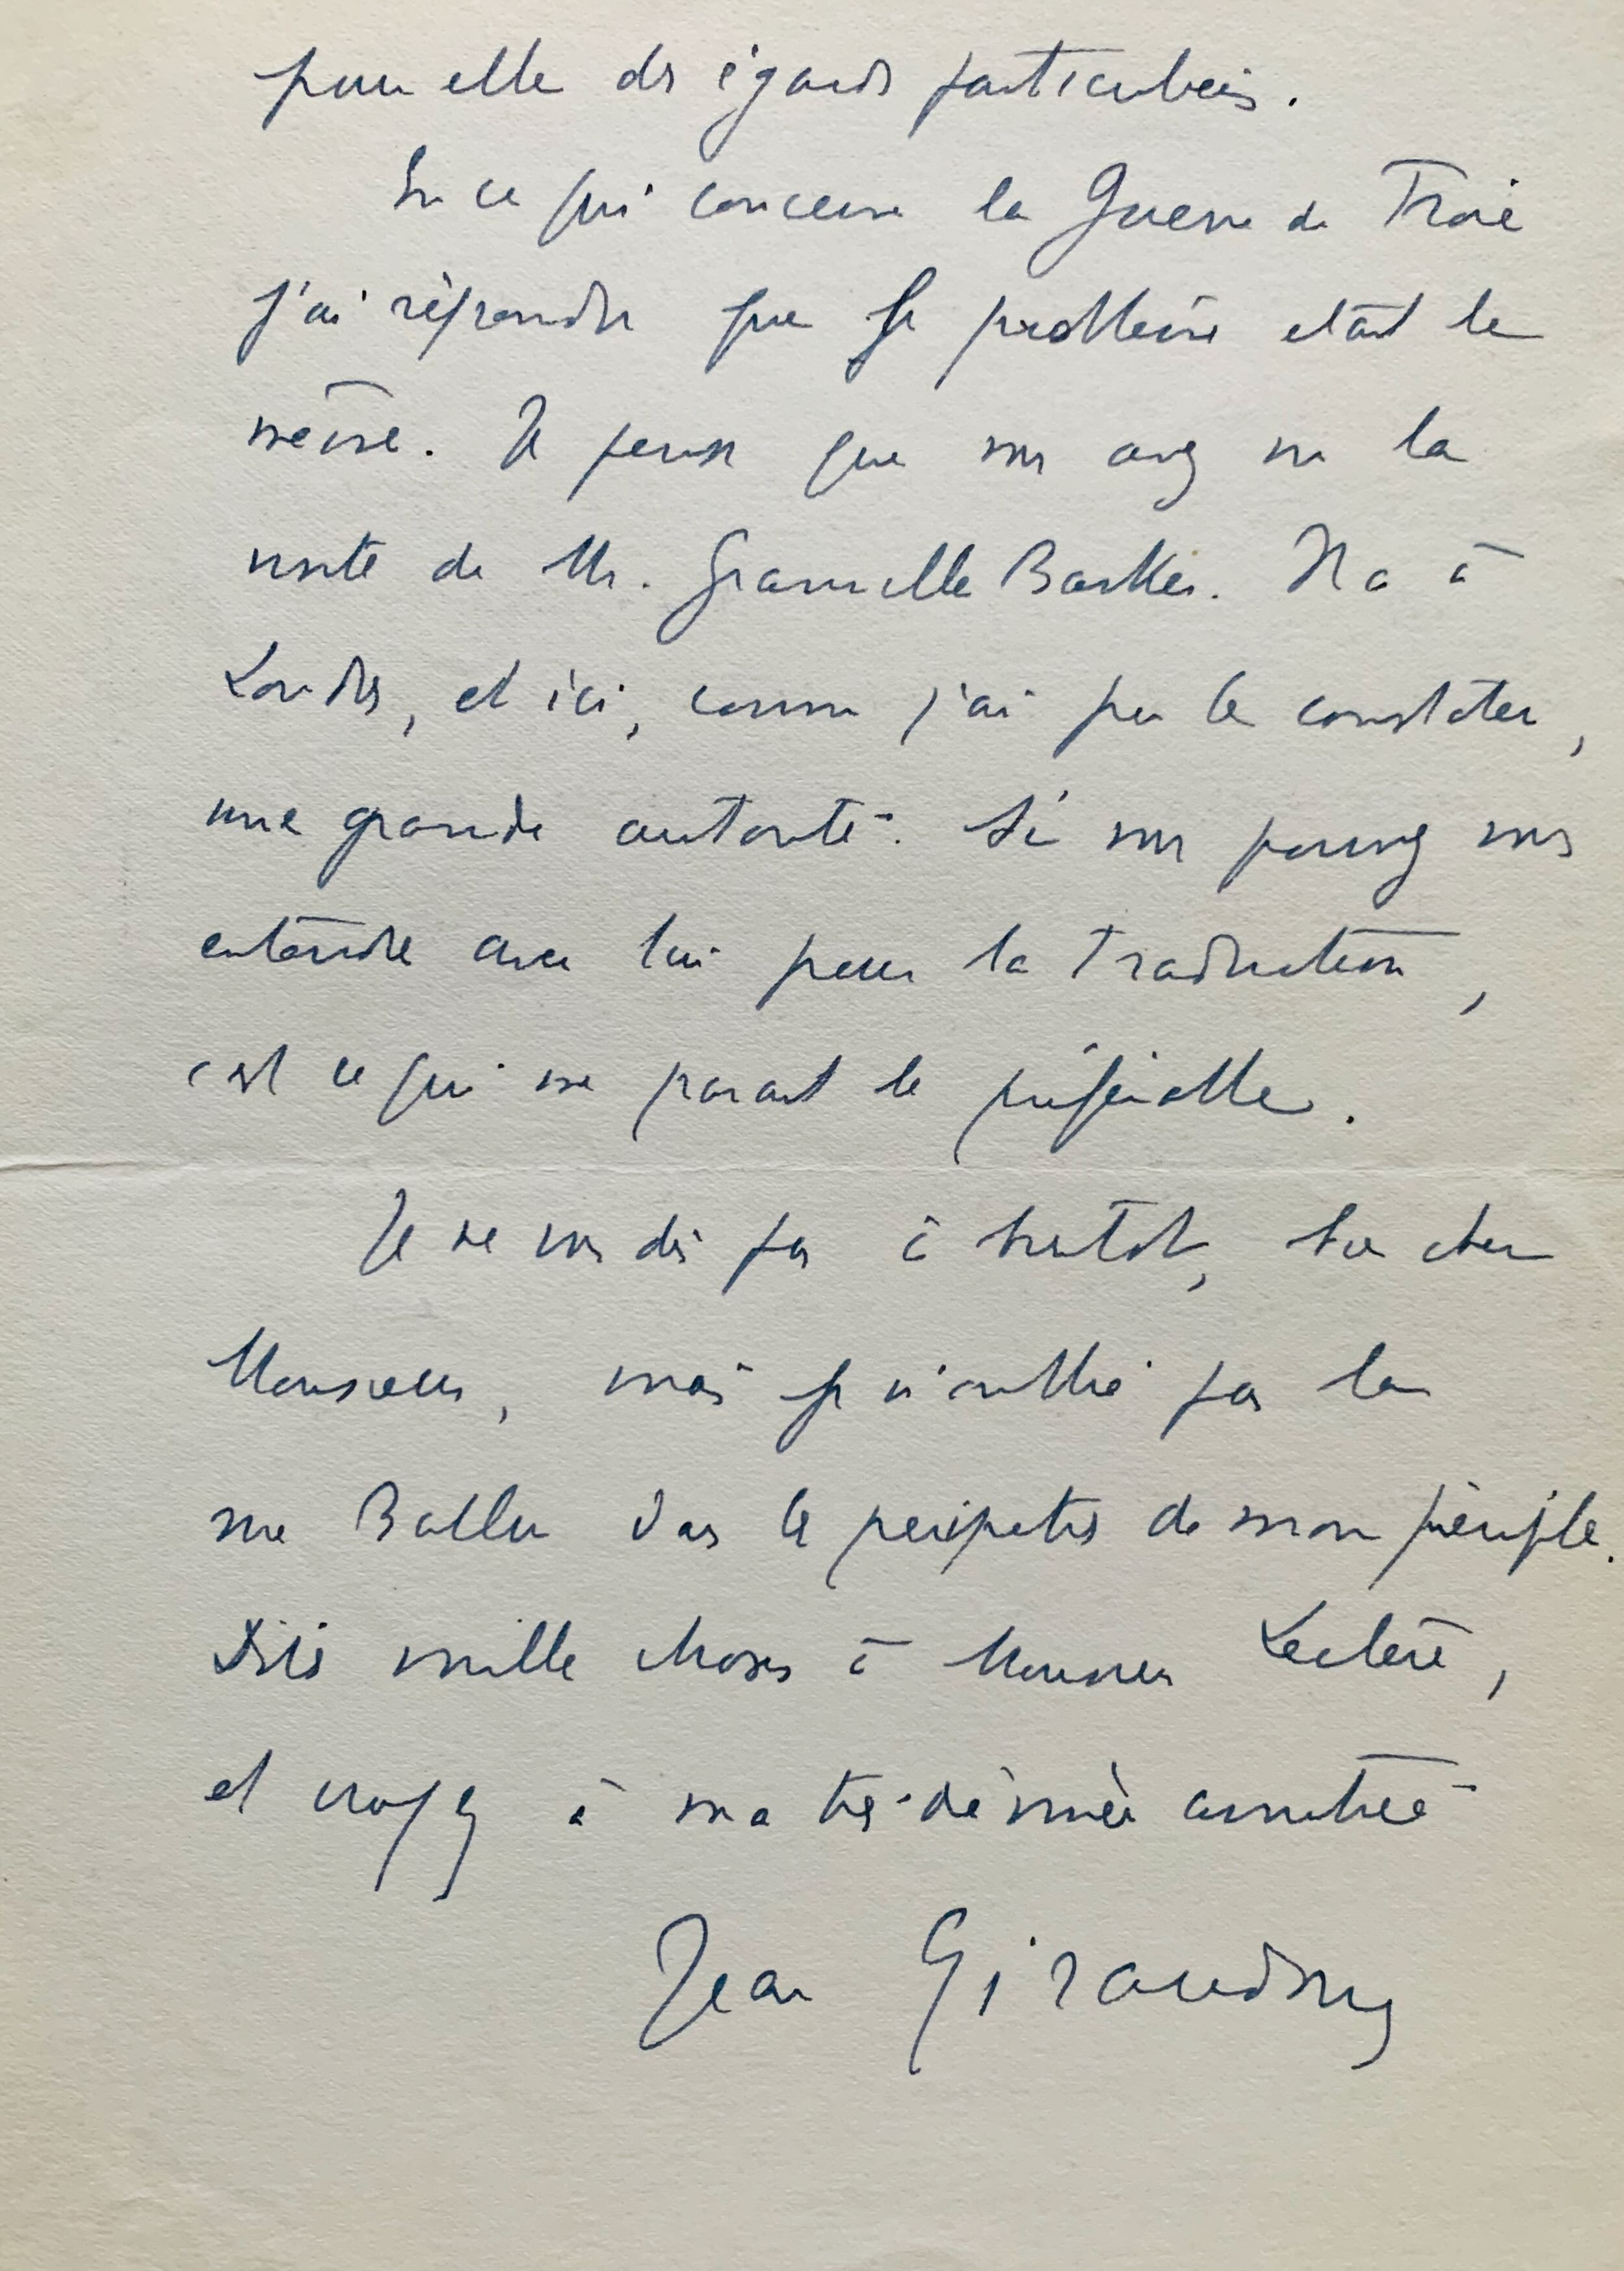 pour elle des égards particuliers.
En ce qui concerne la Guerre de Troie
j'ai répondu que le problème était le
même. Je pense que vous avez vu la
visite de Mr. Granville Barker. Il a à
Londres, et ici, comme j'ai pu le constater,
une grande autorité. Si vous pouvez vous
entendre avec lui pour la traduction,
c'est ce qui me paraît le préférable.
Je ne vous dis pas à bientôt, bien cher
Monsieur, mais je n'oublie pas la
rue Ballu dans les péripéties de mon périple.
Dites mille choses à Monsieur Leclerc,
et croyez à ma très dévouée amitié
Jean Giraudoux